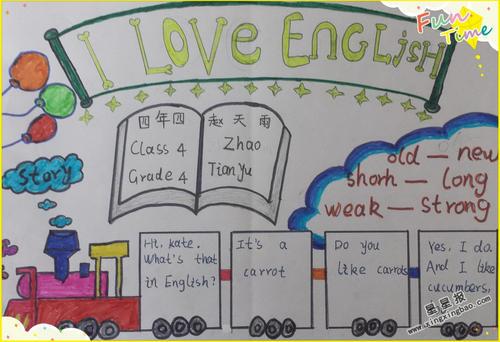 Fun Time
I LOVE ENGLiSH
四年四
Class 4
Grade 4
赵天雨
Zhao
TianYu
Story
old — new
shorh — long
weak — strong
Hi, kate.
What's that
in English?
It's a
carrot
Do you
like carrots
Yes, I do.
And I like
cucumbers.
星星报
www.xingxingbao.com